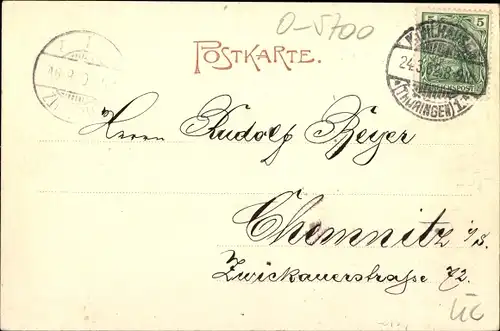 O-5700
POSTKARTE.
5 5
MÜHLHAUSEN
24.3.
(THÜRINGEN) 1.
Herrn Rudolf Beyer
Chemnitz i/S.
Zwickauerstraße 72.